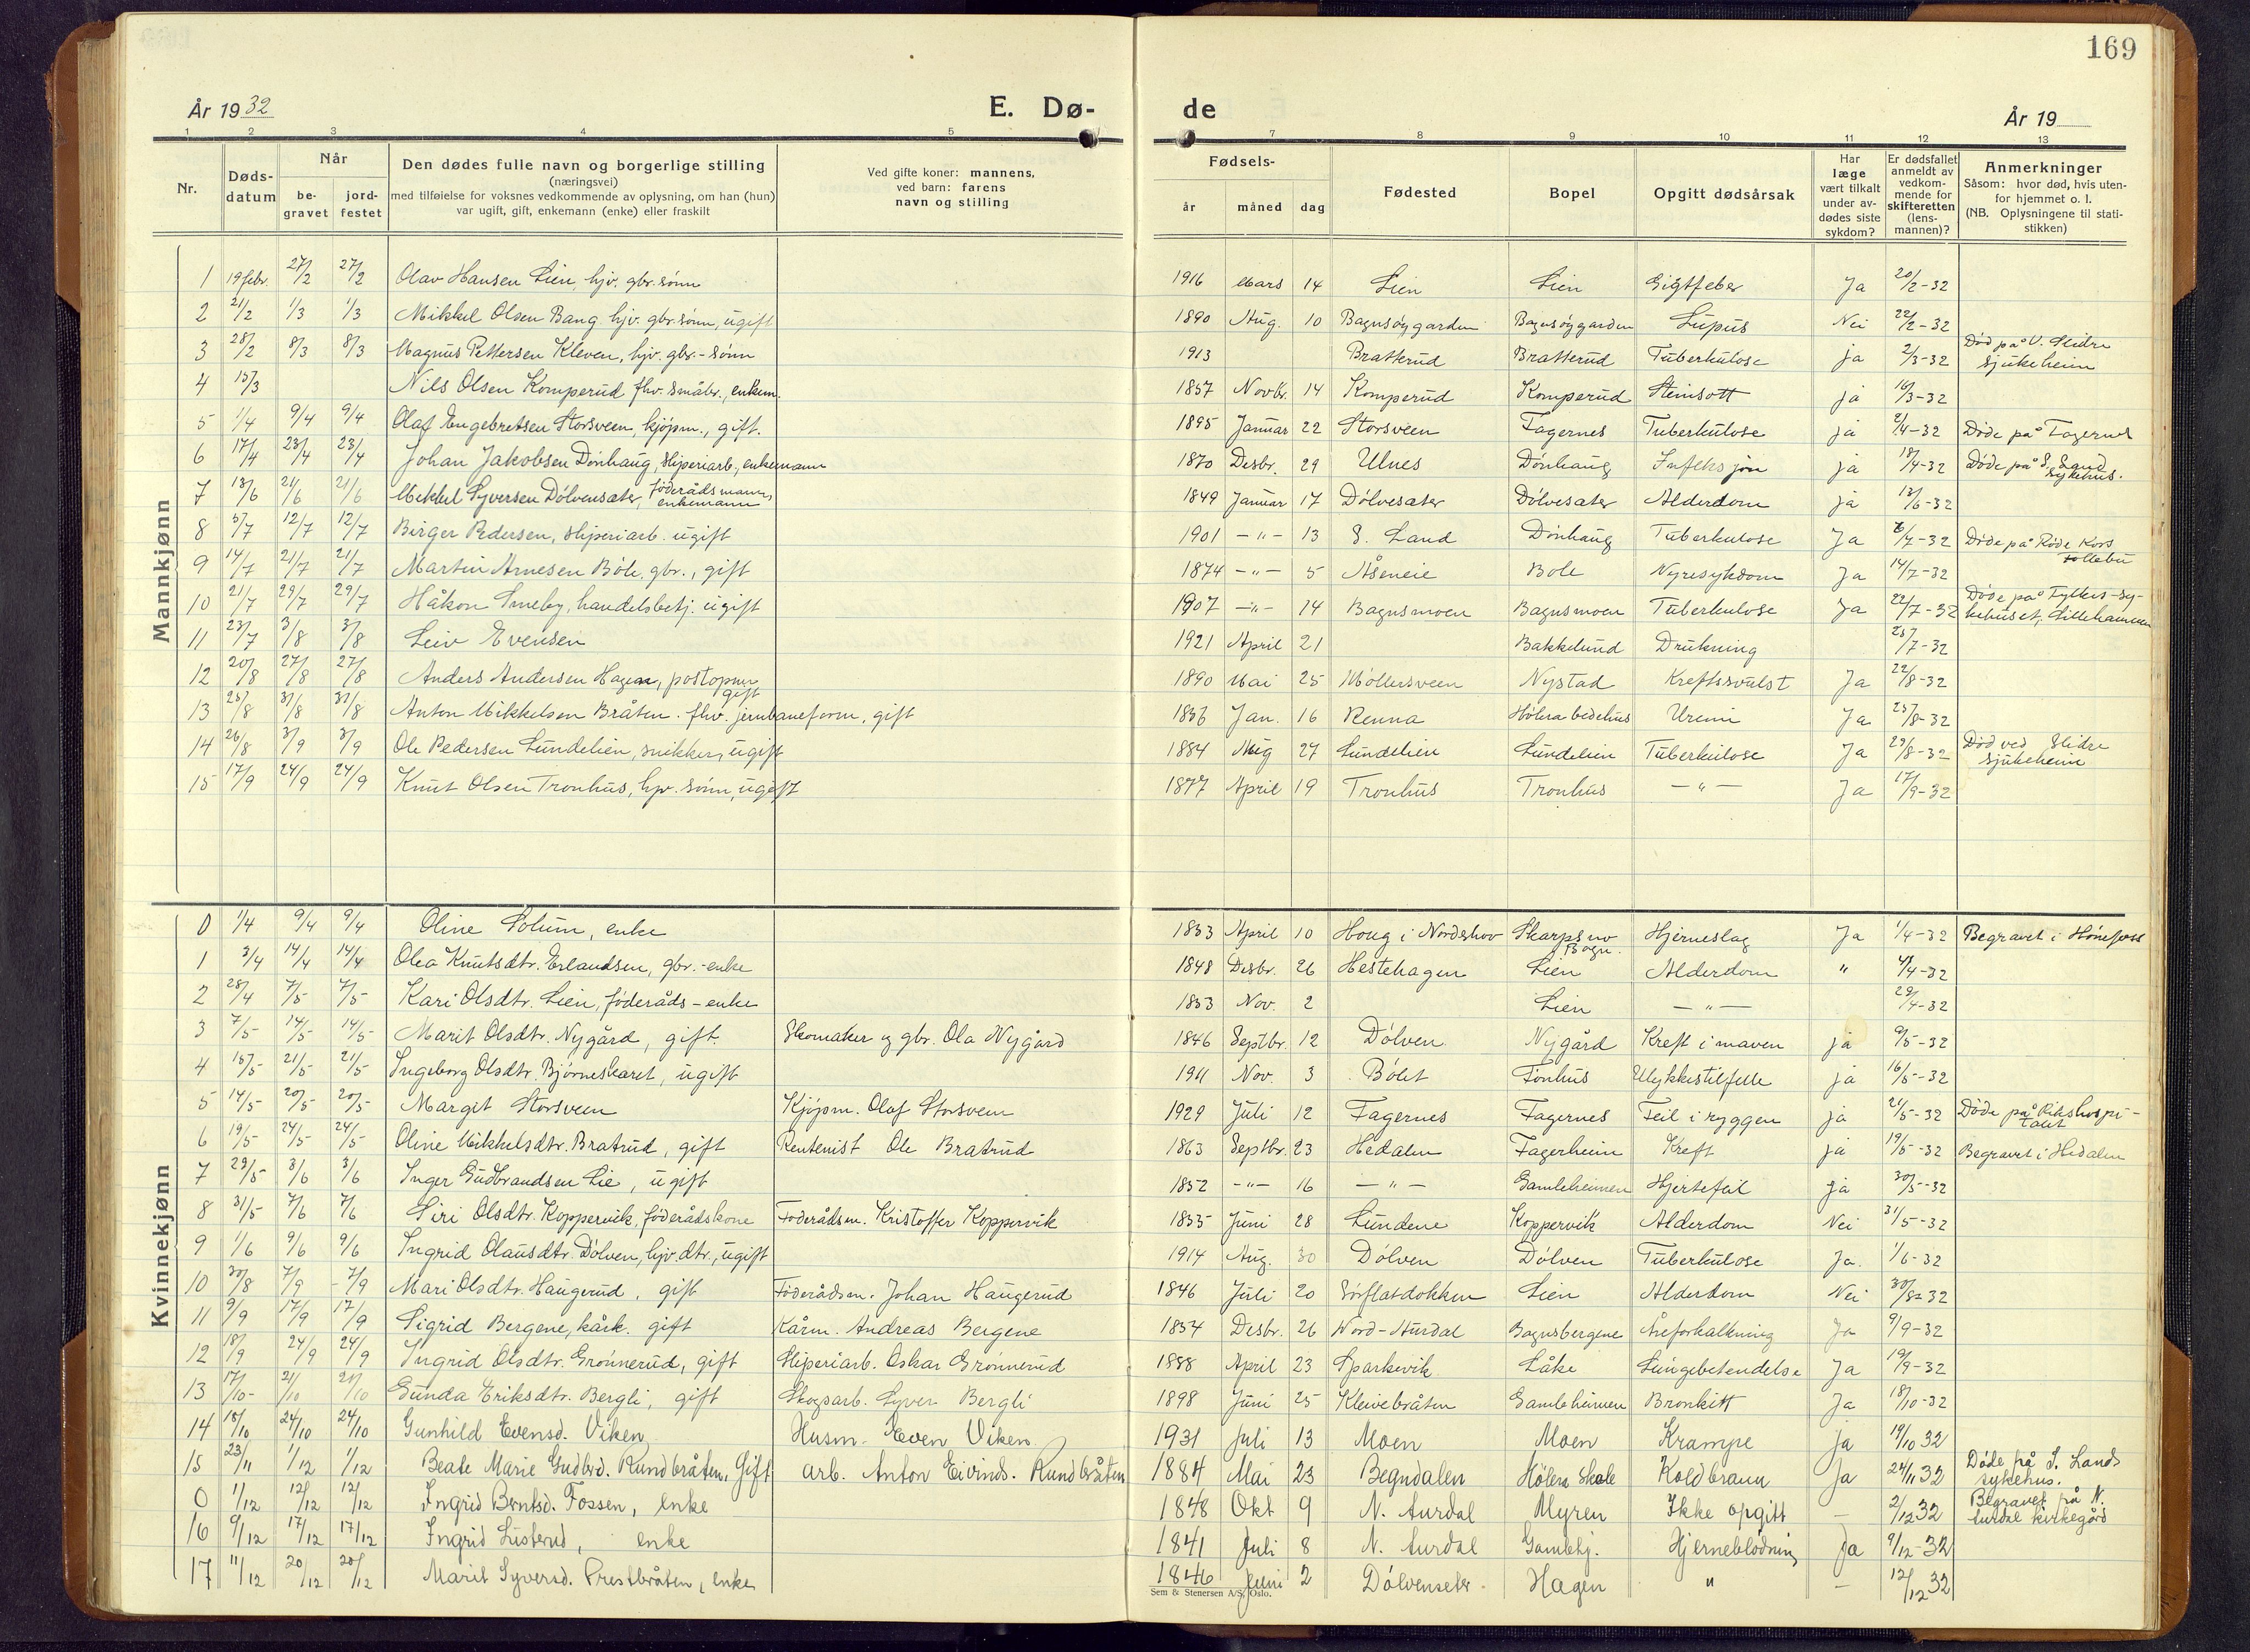 169
År 1932
E. Dø-
de
År 19
1 2 3 4 5 7 8 9 10 11 12 13
Nr.
Døds-
datum
Når
be-
gravet
jord-
festet
Den dødes fulle navn og borgerlige stilling
(næringsvei)
med tilføielse for voksnes vedkommende av oplysning, om han (hun)
var ugift, gift, enkemann (enke) eller fraskilt
Ved gifte koner: mannens,
ved barn: farens
navn og stilling
Fødsels-
år måned dag
Fødested
Bopel
Opgitt dødsårsak
Har
læge
vært tilkalt
under av-
dødes siste
sykdom?
Er dødsfallet
anmeldt av
vedkom-
mende for
skifteretten
(lens-
mannen)?
Anmerkninger
Såsom: hvor død, hvis uten-
for hjemmet o. l.
(NB. Oplysningene til stati-
stikken)
Mannkjønn
1 19 febr. 27/2 27/2 Olav Hansen Lien, hjv. gbr. sønn 1916 Mars 14 Lien Lien Gigtfeber Ja 20/2-32
2 21/2 1/3 1/3 Mikkel Olsen Bang hjv. gbr. sønn, ugift 1890 Aug. 10 Bagnsøygarden Bagnsøygarden Lupus Nei 22/2-32
3 28/2 8/3 8/3 Magnus Pettersen Kleven, hjv. gbr.-sønn 1913 Bratterud Bratterud Tuberkulose ja 2/3-32 Død på V. Slidre
sjukeheim
4 15/3 Nils Olsen Komperud fhv. småbr., enkem. 1857 Novbr. 14 Komperud Komperud Steinsott ja 16/3-32
5 1/4 9/4 9/4 Olaf Engebretsen Storsveen, kjøpm., gift. 1895 Januar 22 Storsveen Fagernes Tuberkulose ja 2/4-32 Døde på Fagernes
6 17/4 23/4 23/4 Johan Jakobsen Dønhaug, sliperiarb., enkemann 1870 Desbr. 29 Ulnes Dønhaug Infeksjon ja 18/4-32 Døde på S. Land
sykehus.
7 13/6 21/6 21/6 Mikkel Syversen Dølvensæter, føderådsmann,
enkemann 1849 Januar 17 Dølvesæter Dølvesæter Alderdom ja 13/6-32
8 5/7 12/7 12/7 Birger Pedersen, sliperiarb. ugift 1901 —"— 13 S. Land Dønhaug Tuberkulose Ja 6/7-32 Døde på Røde Kors
9 14/7 21/7 21/7 Martin Arnesen Bøle, gbr., gift 1874 —"— 5 Åseneie Bøle Nyresykdom Ja 14/7-32
10 21/7 29/7 29/7 Håkon Smeby, handelsbetj. ugift 1907 —"— 14 Bagnsmoen Bagnsmoen Tuberkulose Ja 22/7-32 Døde på Fylkes-sy-
kehuset, Lillehammer
11 23/7 3/8 3/8 Leiv Evensen 1921 April 21 Bakkelund Drukning 25/7-32
12 20/8 27/8 27/8 Anders Andersen Hagen, postopner
gift 1890 Mai 25 Møllersveen Nystad Kreftsvulst Ja 22/8-32
13 25/8 31/8 31/8 Anton Mikkelsen Bråten. fhv. jernbaneform, gift 1856 Jan. 16 Renna Hølera bedehus Uremi Ja 25/8-32
14 26/8 3/9 3/9 Ole Pedersen Lundelien, snikker, ugift 1884 Aug 27 Lundelien Lundelien Tuberkulose Ja 29/8-32 Død ved Slidre
sjukeheim
15 17/9 24/9 24/9 Knut Olsen Tronhus, hjv. sønn, ugift 1877 April 19 Tronhus Tronhus —"— Ja 17/9-32
Kvinnekjønn
0 1/4 9/4 9/4 Oline Solum, enke 1853 April 10 Houg i Norderhov Skarpsno
Bagn. Hjerneslag Ja 1/4-32 Begravet i Hønefoss
1 3/4 14/4 14/4 Olea Knutsdtr. Erlandsen, gbr.-enke 1848 Desbr. 26 Hestehagen Lien Alderdom " 4/4-32
2 28/4 7/5 7/5 Kari Olsdtr. Lien, føderåds-enke 1853 Nov. 2 Lien —"— 29/4-32
3 7/5 14/5 14/5 Marit Olsdtr. Nygård, gift. Skomaker og gbr. Ola Nygård 1846 Septbr. 12 Dølven Nygård Kreft i maven ja 9/5-32
4 15/5 21/5 21/5 Ingeborg Olsdtr. Bjørneskaret, ugift 1911 Nov. 3 Bølet Fønhus Ulykkestilfelle ja 16/5-32
5 14/5 20/5 20/5 Margit Storsveen Kjøpm. Olaf Storsveen 1929 Juli 12 Fagernes Fagernes Feil i ryggen ja 21/5-32 Døde på Rikshospi-
talet
6 19/5 24/5 24/5 Oline Mikkelsdtr. Bratrud, gift Rentenist Ole Bratrud 1863 Septbr. 23 Hedalen Fagerheim Kreft ja 19/5-32 Begravet i Hedalen
7 29/5 3/6 3/6 Inger Gudbrandsen Lie, ugift 1852 —"— 16 —"— Gamleheimen Hjertefeil ja 30/5-32
8 31/5 7/6 7/6 Siri Olsdtr. Koppervik, føderådskone Føderådsm. Kristoffer Koppervik 1835 Juni 28 Lundene Koppervik Alderdom Nei 31/5-32
9 1/6 9/6 9/6 Ingrid Olausdtr. Dølven, hjv. dtr., ugift 1914 Aug. 30 Dølven Dølven Tuberkulose Ja. 1/6-32
10 30/8 7/9 7/9 Mari Olsdtr. Haugerud, gift Føderådsm. Johan Haugerud 1846 Juli 20 Sørflatdokken Lien Alderdom Nei 30/8-32
11 9/9 17/9 17/9 Sigrid Bergene, kårk. gift Kårm. Andreas Bergene 1854 Desbr. 26 Nord-Aurdal Bagnsbergene Åreforkalkning Ja 9/9-32
12 18/9 24/9 24/9 Ingrid Olsdtr. Grønnerud, gift Sliperiarb. Oskar Grønnerud 1888 April 23 Sparkevik Låke Lungebetendelse Ja 19/9-32
13 17/10 21/10 21/10 Gunda Eriksdtr. Bergli, gift Skogsarb. Syver Bergli 1898 Juni 25 Kleivebråten Gamleheimen Bronkitt Ja 18/10-32
14 18/10 24/10 24/10 Gunhild Evensd. Viken Husm. Even Viken 1931 Juli 13 Moen Moen Krampe ja 19/10 32
15 23/11 1/12 1/12 Beate Marie Gudbrd. Rundbråten, Gift arb. Anton Eivinds. Rundbråten 1884 Mai 23 Begndalen Hølera Skole Koldbrann Ja 24/11 32 Døde på S. Lands
sykehus.
0 1/12 12/12 12/12 Ingrid Berntsd. Fossen, enke 1848 Okt 9 N. Aurdal Myren Ikke opgitt — 2/12 32 Begravet på N.
Aurdal kirkegård
16 9/12 17/12 17/12 Ingrid Listerud, enke 1841 Juli 8 N. Aurdal Gamlehj. Hjerneblødning Ja 9/12-32
17 11/12 20/12 20/12 Marit Syversd. Prestbråten, enke 1846 Juni 2 Dølvenseter Hagen " — 12/12 32
Sem & Stenersen A/S, Oslo.